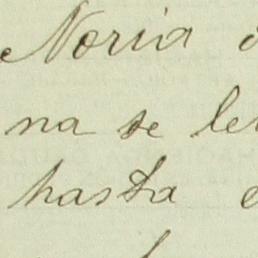 Noria
na se
hasta